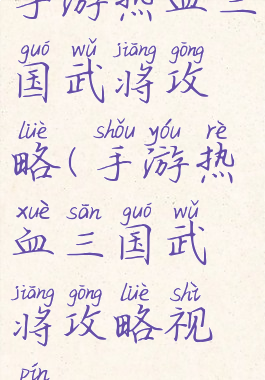 手游热血三
guó wǔ jiāng gōng
国武将攻
lüè shǒu yóu rè
略(手游热
xuè sān guó wǔ
血三国武
jiāng gōng lüè shì
将攻略视
pín